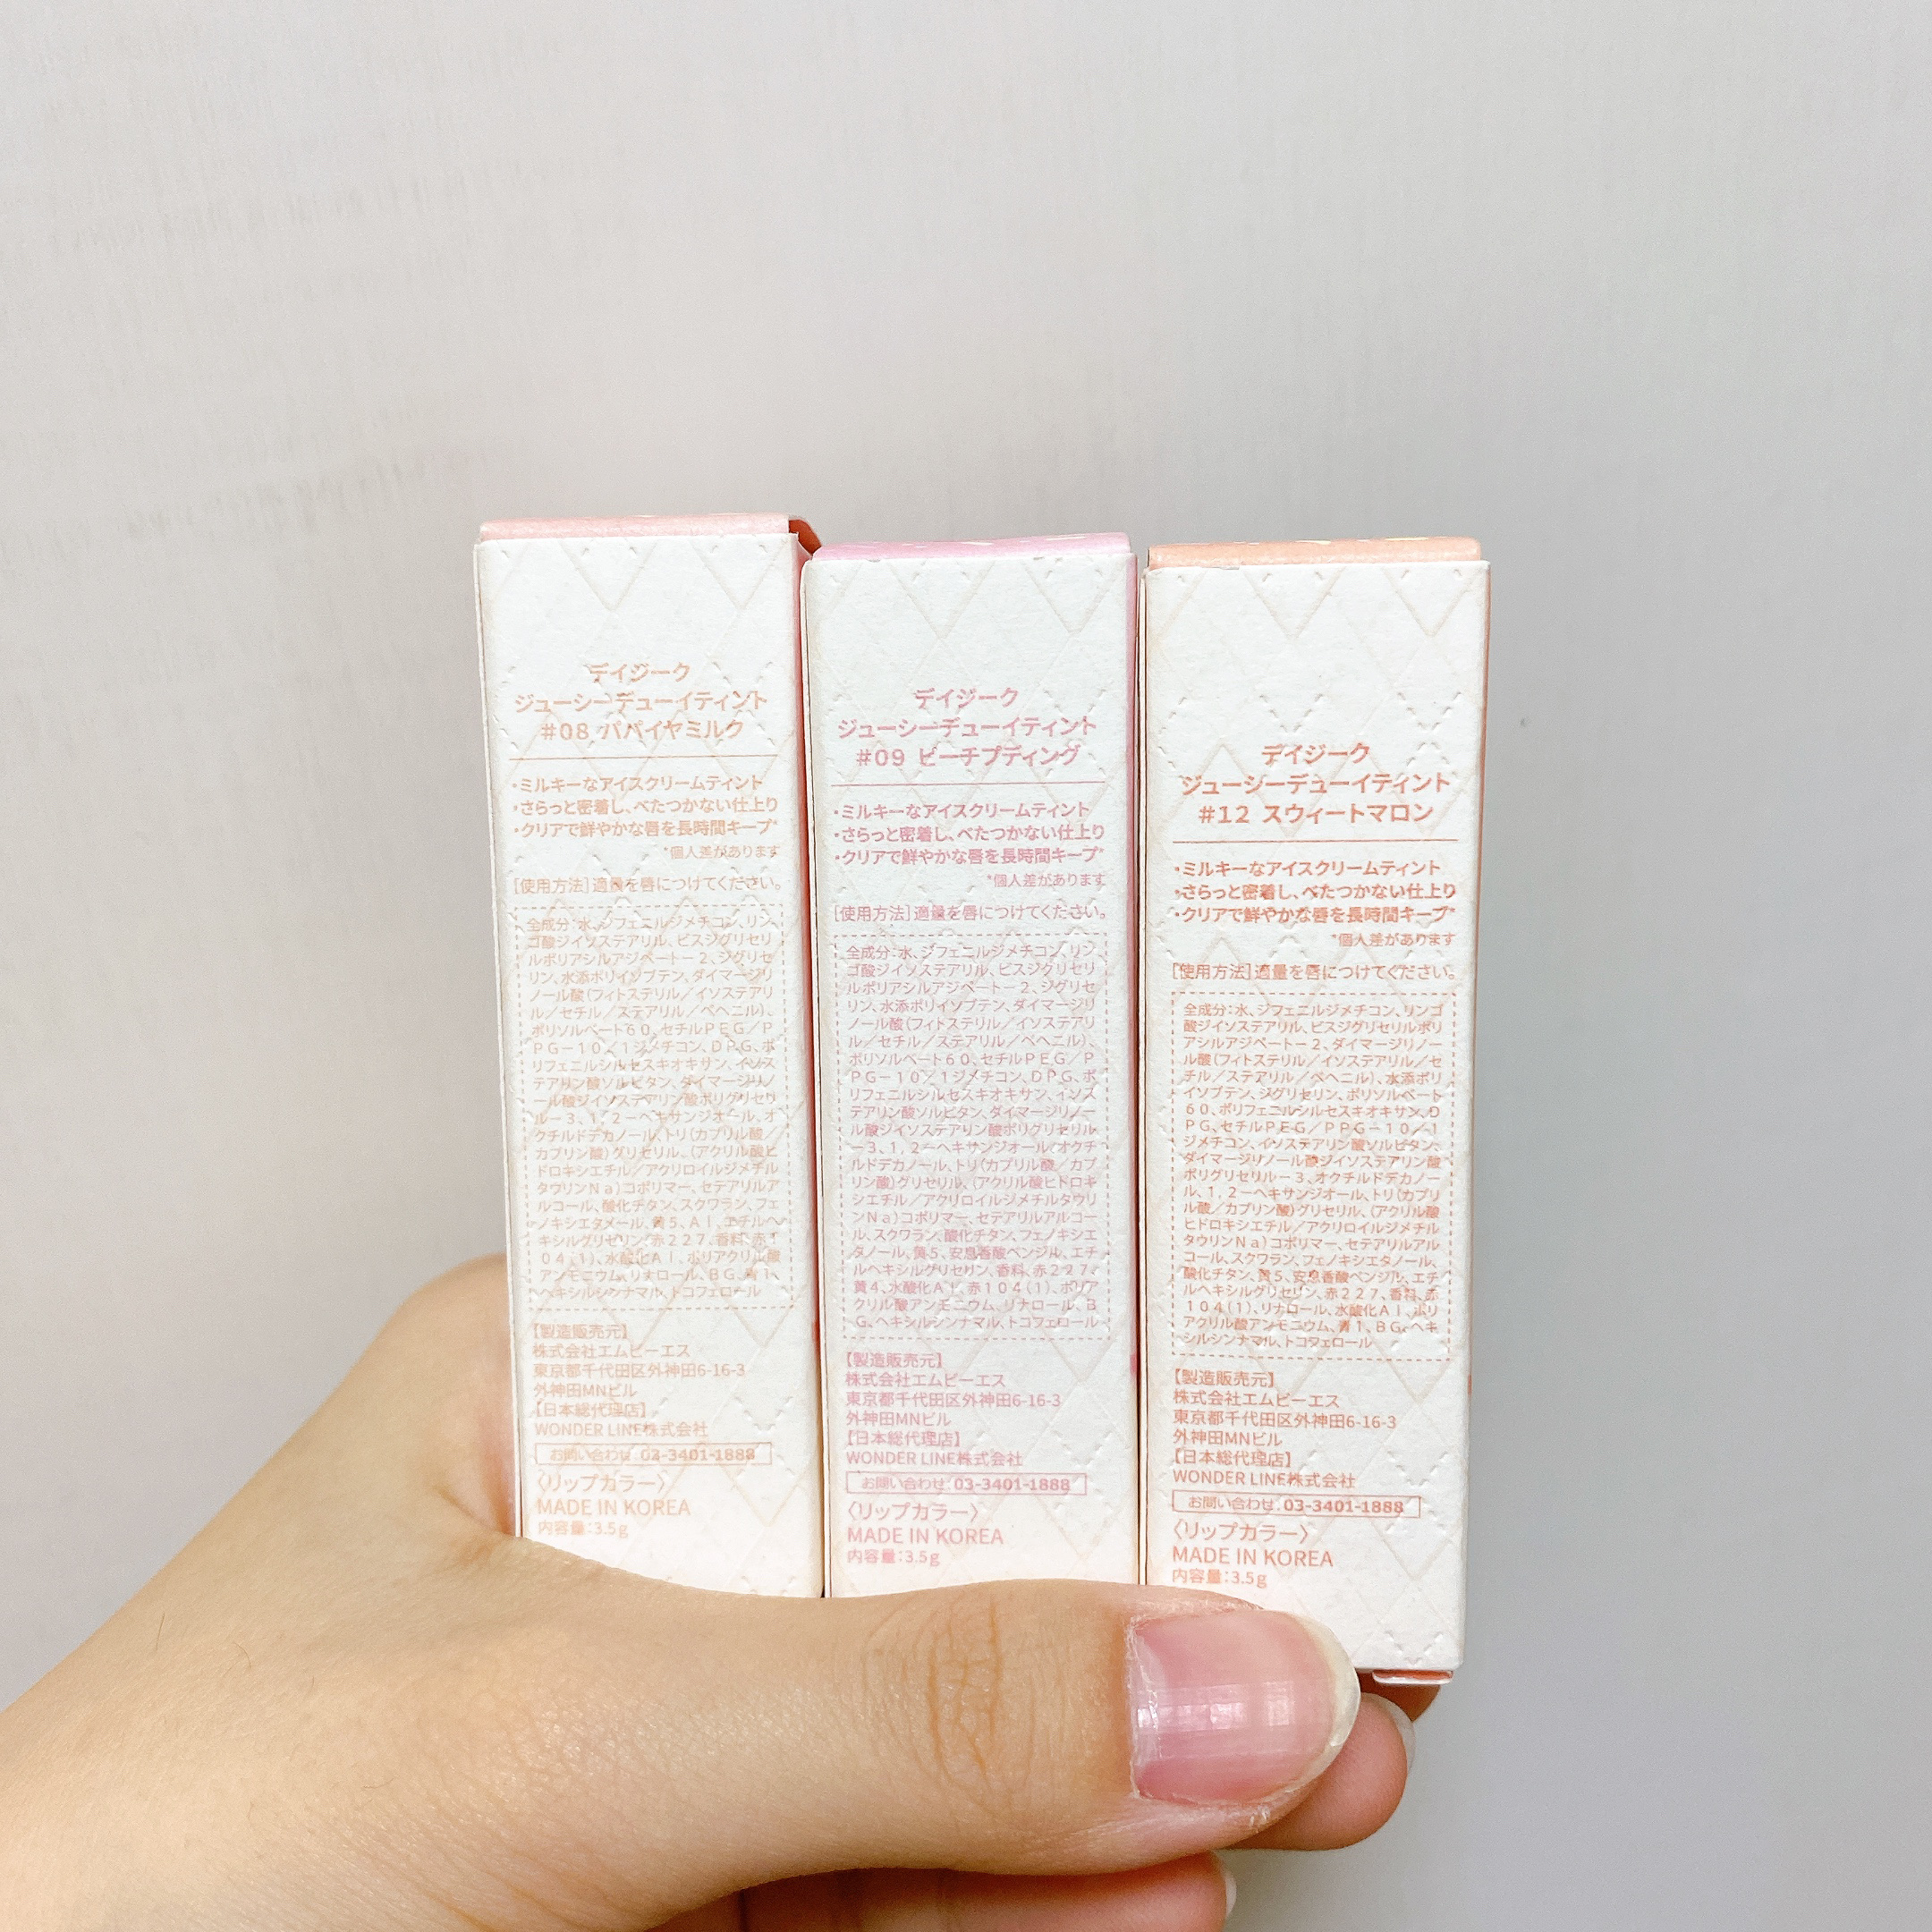 デイジーク
ジューシーデューイティント
#08 パパイヤミルク
・ミルキーなアイスクリームティント
・さらっと密着し、べたつかない仕上り
・クリアで鮮やかな唇を長時間キープ*
*個人差があります
[使用方法]適量を唇につけてください。
全成分:水、ジフェニルジメチコン、リン
ゴ酸ジイソステアリル、ビスジグリセリ
ルポリアシルアジペートー2、ジグリセ
リン、水添ポリイソブテン、ダイマージリ
ノール酸(フィトステリル/イソステアリ
ル/セチル/ステアリル/ベヘニル)、
ポリソルベート60、セチルPEG/P
PGー10/1ジメチコン、DPG、ポ
リフェニルシルセスキオキサン、イソス
テアリン酸ソルビタン、ダイマージリノ
ール酸ジイソステアリン酸ポリグリセリ
ルー3、1,2ーヘキサンジオール、オ
クチルドデカノール、トリ(カプリル酸/
カプリン酸)グリセリル、(アクリル酸ヒ
ドロキシエチル/アクリロイルジメチル
タウリンNa)コポリマー、セテアリルア
ルコール、酸化チタン、スクワラン、フェ
ノキシエタノール、黄5、Al、エチルヘ
キシルグリセリン、香料、赤227、赤1
04(1)、水酸化Al、ポリアクリル酸
アンモニウム、リナロール、BG、青1、
ヘキシルシンナマル、トコフェロール
【製造販売元】
株式会社エムビーエス
東京都千代田区外神田6-16-3
外神田MNビル
【日本総代理店】
WONDER LINE株式会社
お問い合わせ:03-3401-1888
〈リップカラー〉
MADE IN KOREA
内容量:3.5g
デイジーク
ジューシーデューイティント
#09 ピーチプディング
・ミルキーなアイスクリームティント
・さらっと密着し、べたつかない仕上り
・クリアで鮮やかな唇を長時間キープ*
*個人差があります
[使用方法]適量を唇につけてください。
全成分:水、ジフェニルジメチコン、リン
ゴ酸ジイソステアリル、ビスジグリセリ
ルポリアシルアジペートー2、ジグリセ
リン、水添ポリイソブテン、ダイマージリ
ノール酸(フィトステリル/イソステアリ
ル/セチル/ステアリル/ベヘニル)、
ポリソルベート60、セチルPEG/P
PGー10/1ジメチコン、DPG、ポ
リフェニルシルセスキオキサン、イソス
テアリン酸ソルビタン、ダイマージリノー
ル酸ジイソステアリン酸ポリグリセリル
ー3、1,2ーヘキサンジオール、オクチ
ルドデカノール、トリ(カプリル酸/カプ
リン酸)グリセリル、(アクリル酸ヒドロキ
シエチル/アクリロイルジメチルタウリ
ンNa)コポリマー、セテアリルアルコー
ル、スクワラン、酸化チタン、フェノキシエ
タノール、黄5、安息香酸ベンジル、エチ
ルヘキシルグリセリン、香料、赤227、
黄4、水酸化Al、赤104(1)、ポリア
クリル酸アンモニウム、リナロール、B
G、ヘキシルシンナマル、トコフェロール
【製造販売元】
株式会社エムビーエス
東京都千代田区外神田6-16-3
外神田MNビル
【日本総代理店】
WONDER LINE株式会社
お問い合わせ:03-3401-1888
〈リップカラー〉
MADE IN KOREA
内容量:3.5g
デイジーク
ジューシーデューイティント
#12 スウィートマロン
・ミルキーなアイスクリームティント
・さらっと密着し、べたつかない仕上り
・クリアで鮮やかな唇を長時間キープ*
*個人差があります
[使用方法]適量を唇につけてください。
全成分:水、ジフェニルジメチコン、リンゴ
酸ジイソステアリル、ビスジグリセリルポリ
アシルアジペートー2、ダイマージリノー
ル酸(フィトステリル/イソステアリル/セ
チル/ステアリル/ベヘニル)、水添ポリ
イソブテン、ジグリセリン、ポリソルベート
60、ポリフェニルシルセスキオキサン、D
PG、セチルPEG/PPGー10/1
ジメチコン、イソステアリン酸ソルビタン、
ダイマージリノール酸ジイソステアリン酸
ポリグリセリルー3、オクチルドデカノー
ル、1,2ーヘキサンジオール、トリ(カプリ
ル酸/カプリン酸)グリセリル、(アクリル酸
ヒドロキシエチル/アクリロイルジメチル
タウリンNa)コポリマー、セテアリルアル
コール、スクワラン、フェノキシエタノール、
酸化チタン、黄5、安息香酸ベンジル、エチ
ルヘキシルグリセリン、赤227、香料、赤
104(1)、リナロール、水酸化Al、ポリ
アクリル酸アンモニウム、青1、BG、ヘキ
シルシンナマル、トコフェロール
【製造販売元】
株式会社エムビーエス
東京都千代田区外神田6-16-3
外神田MNビル
【日本総代理店】
WONDER LINE株式会社
お問い合わせ:03-3401-1888
〈リップカラー〉
MADE IN KOREA
内容量:3.5g